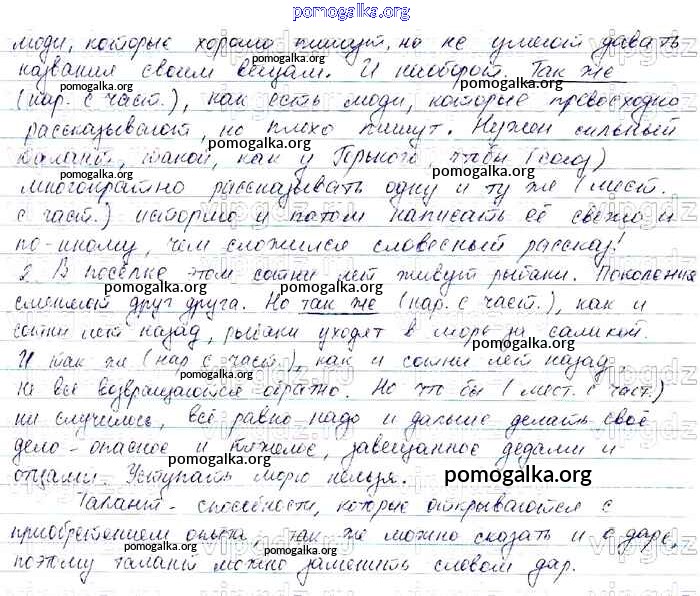 pomogalka.org
люди, которые хорошо пишут, но не умеют давать
названия своим вещам. И наоборот. Так же
(нар. с част.), как есть люди, которые превосходно
рассказывают, но плохо пишут. Нужен сильный
талант, такой, как у Горького, чтобы (союз)
многократно рассказывать одну и ту же (мест.
с част.) историю и потом написать её свежо и
по-иному, чем сложился словесный рассказ!
2. В посёлке этом сотни лет живут рыбаки. Поколения
сменяют друг друга. Но так же (нар. с част.), как и
сотни лет назад, рыбаки уходят в море за салакой.
И так же (нар. с част.), как и сотни лет назад,
не все возвращаются обратно. Но что бы (мест. с част.)
ни случилось, всё равно надо и дальше делать своё
дело - опасное и тяжелое, завещанное дедами и
отцами. Уступать морю нельзя.
pomogalka.org
Талант - способности, которые открываются с
приобретением опыта, так же можно сказать и о даре,
поэтому талант можно заменить словом дар.